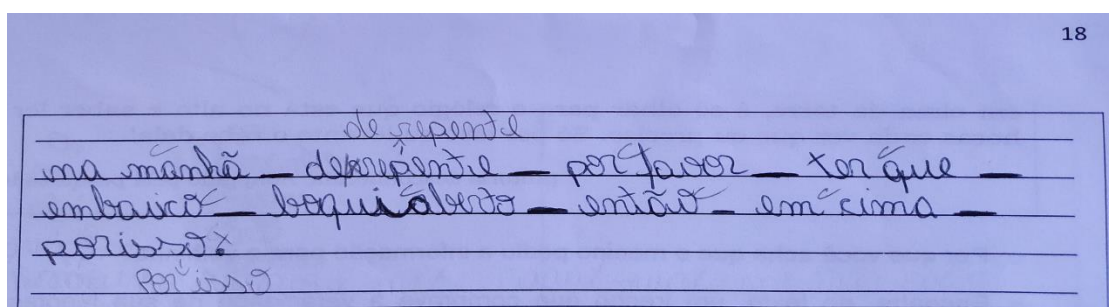 18
de repente
na manhã — derrepente — por favor — ter que —
embaixo — boquiaberto — então — em cima —
porisso.
Por isso